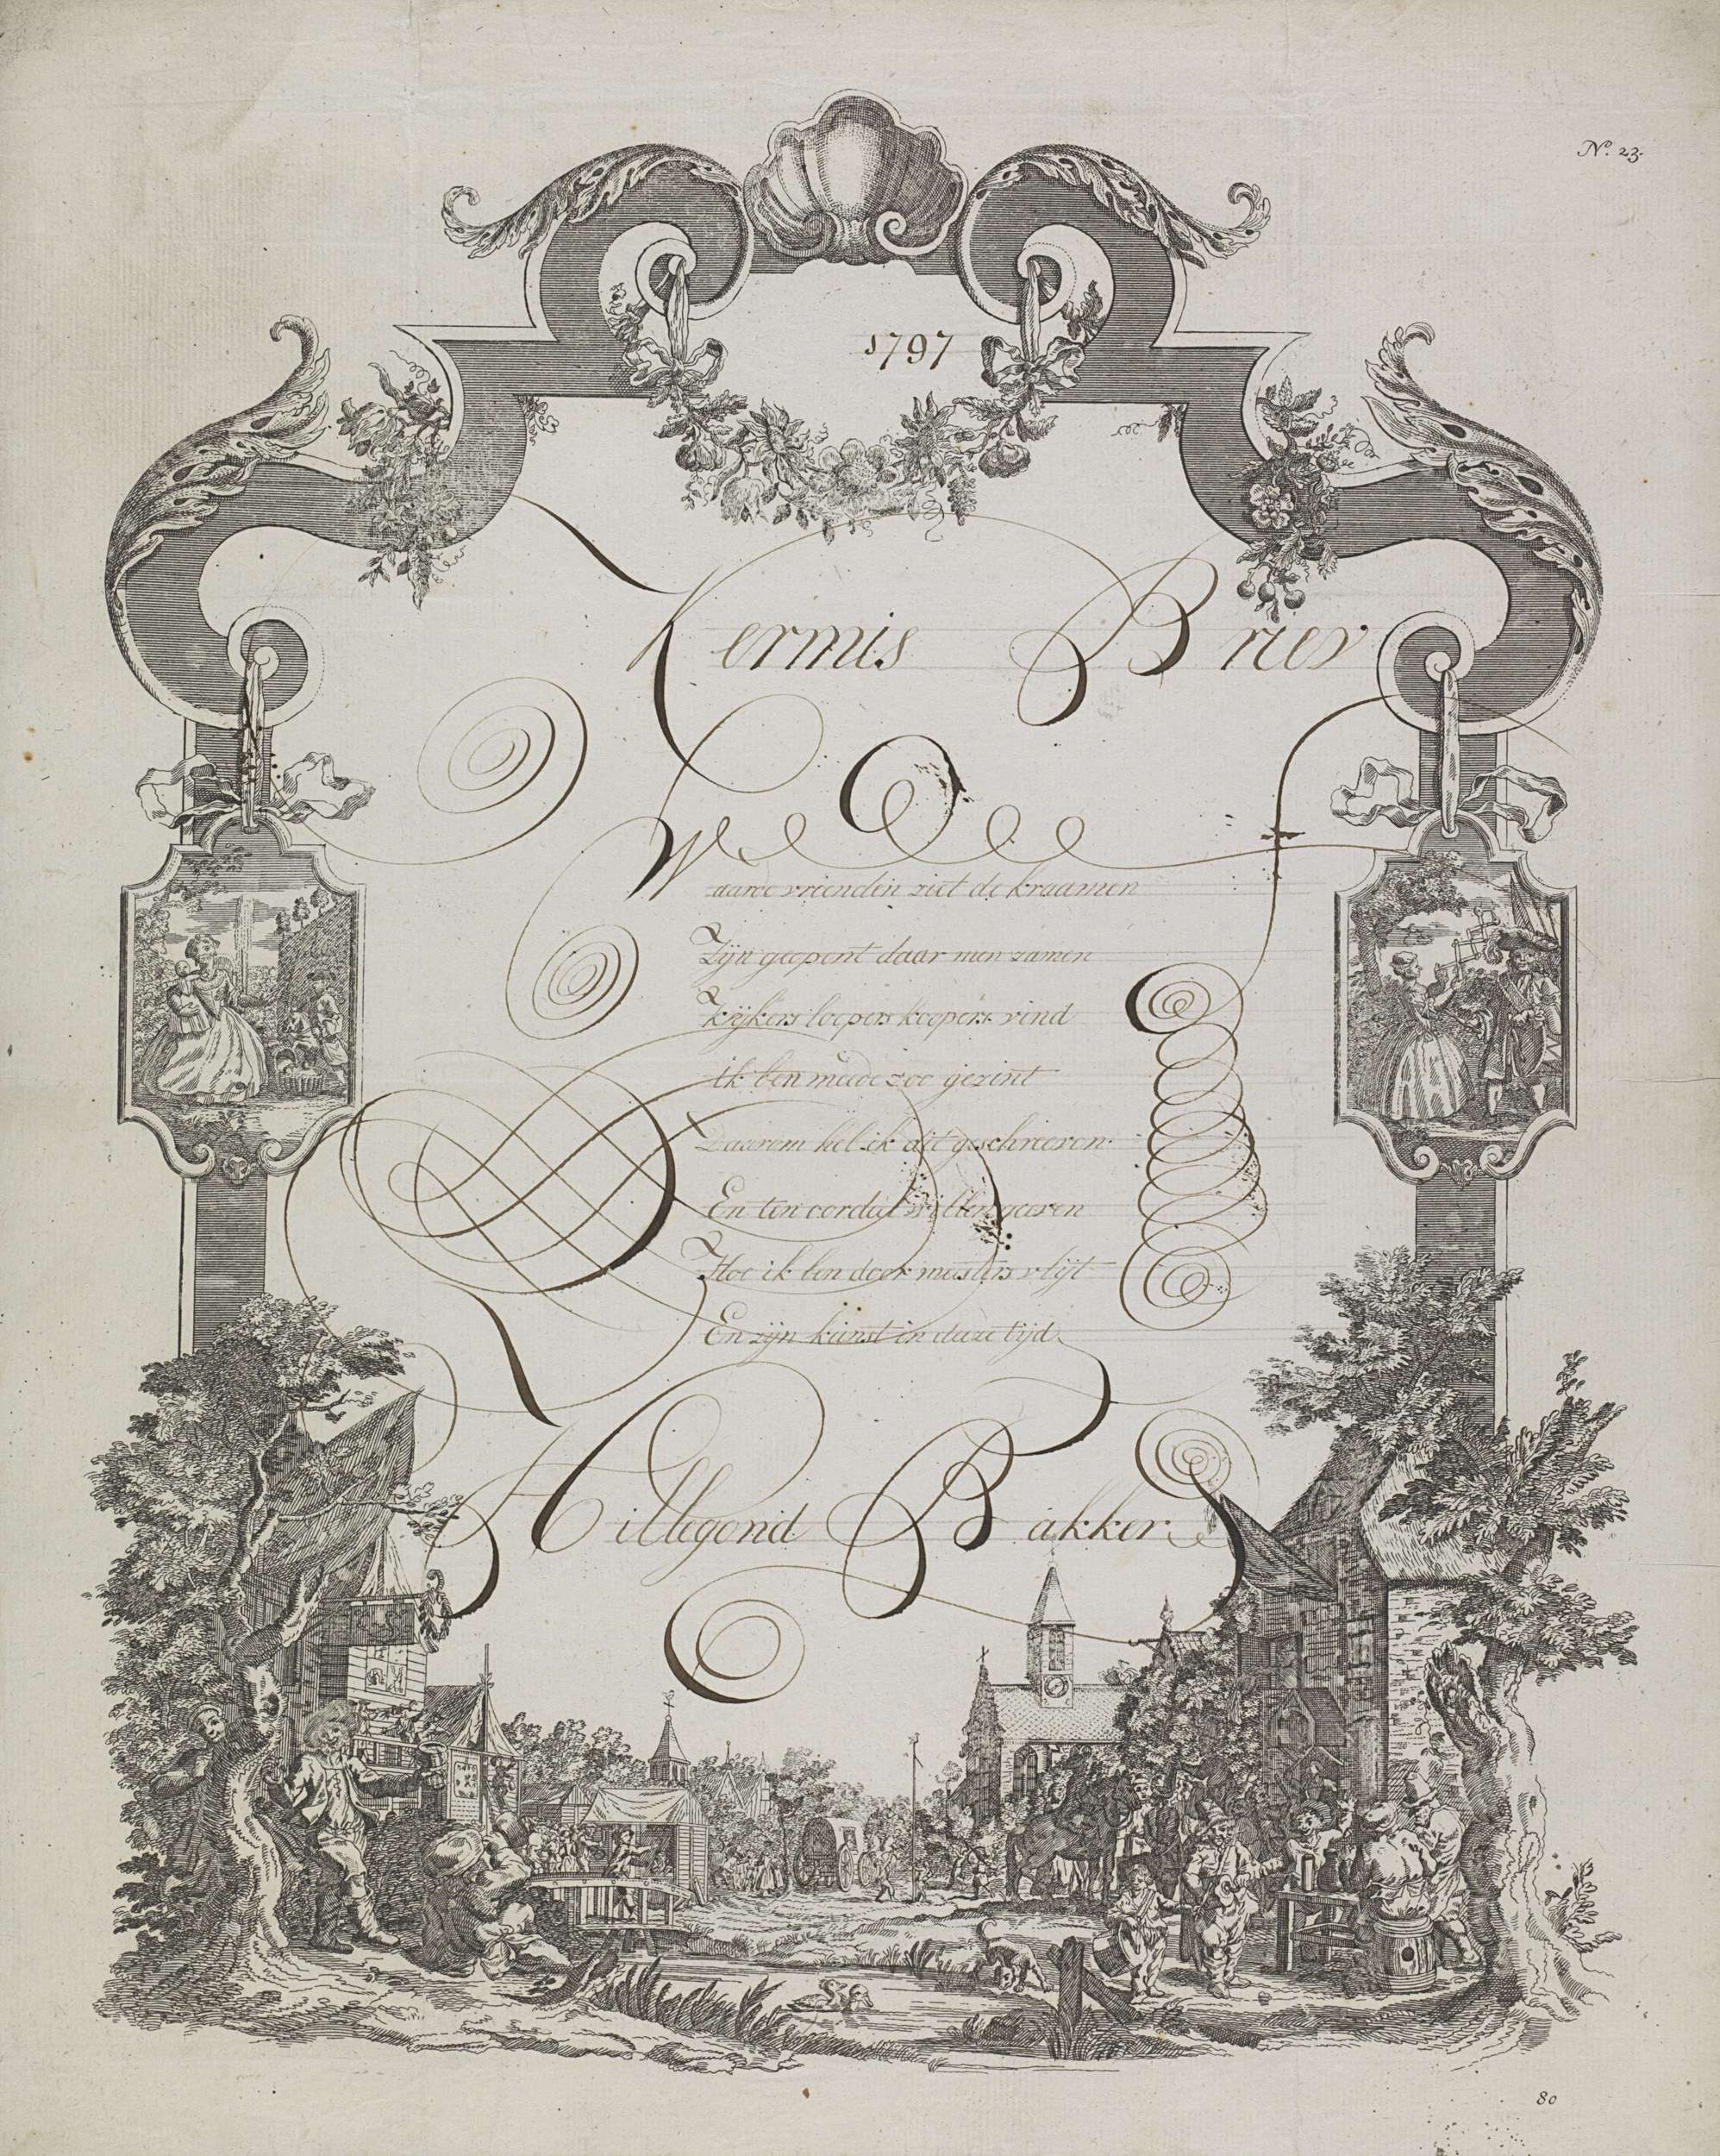 N.º 23.
1797
Kermis Briev
Waarde vrienden ziet de kraamen
Zijn geopent daar men zamen
Kijkers loopers koopers vind
ik ben meede zoo gezint
Daarom heb ik dit geschreeven
En ten oordeel willen geeven
Hoe ik ben door meesters vlijt
En zijn kunst in deeze tijd
Hillegond Bakker
80